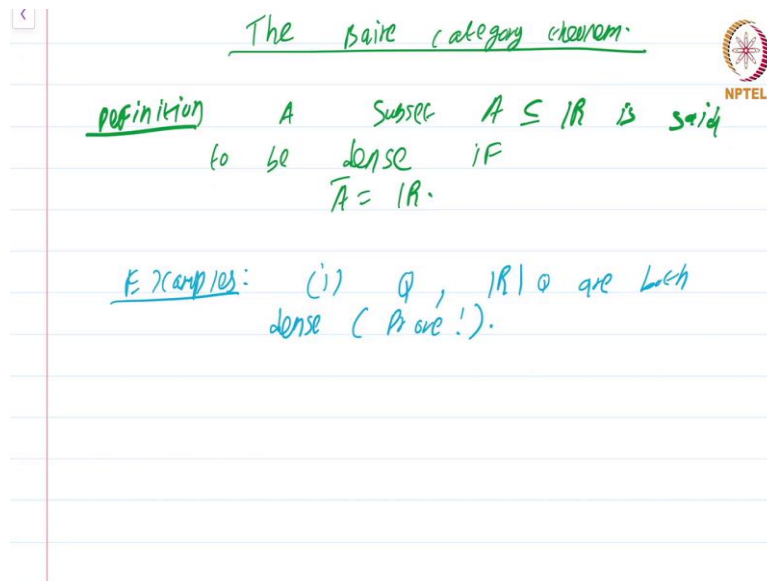 The Baire category theorem.
NPTEL
Definition A subset A ⊆ ℝ is said
to be dense if
Ā = ℝ.
Examples: (i) Q, ℝ\Q are both
dense (Prove!).